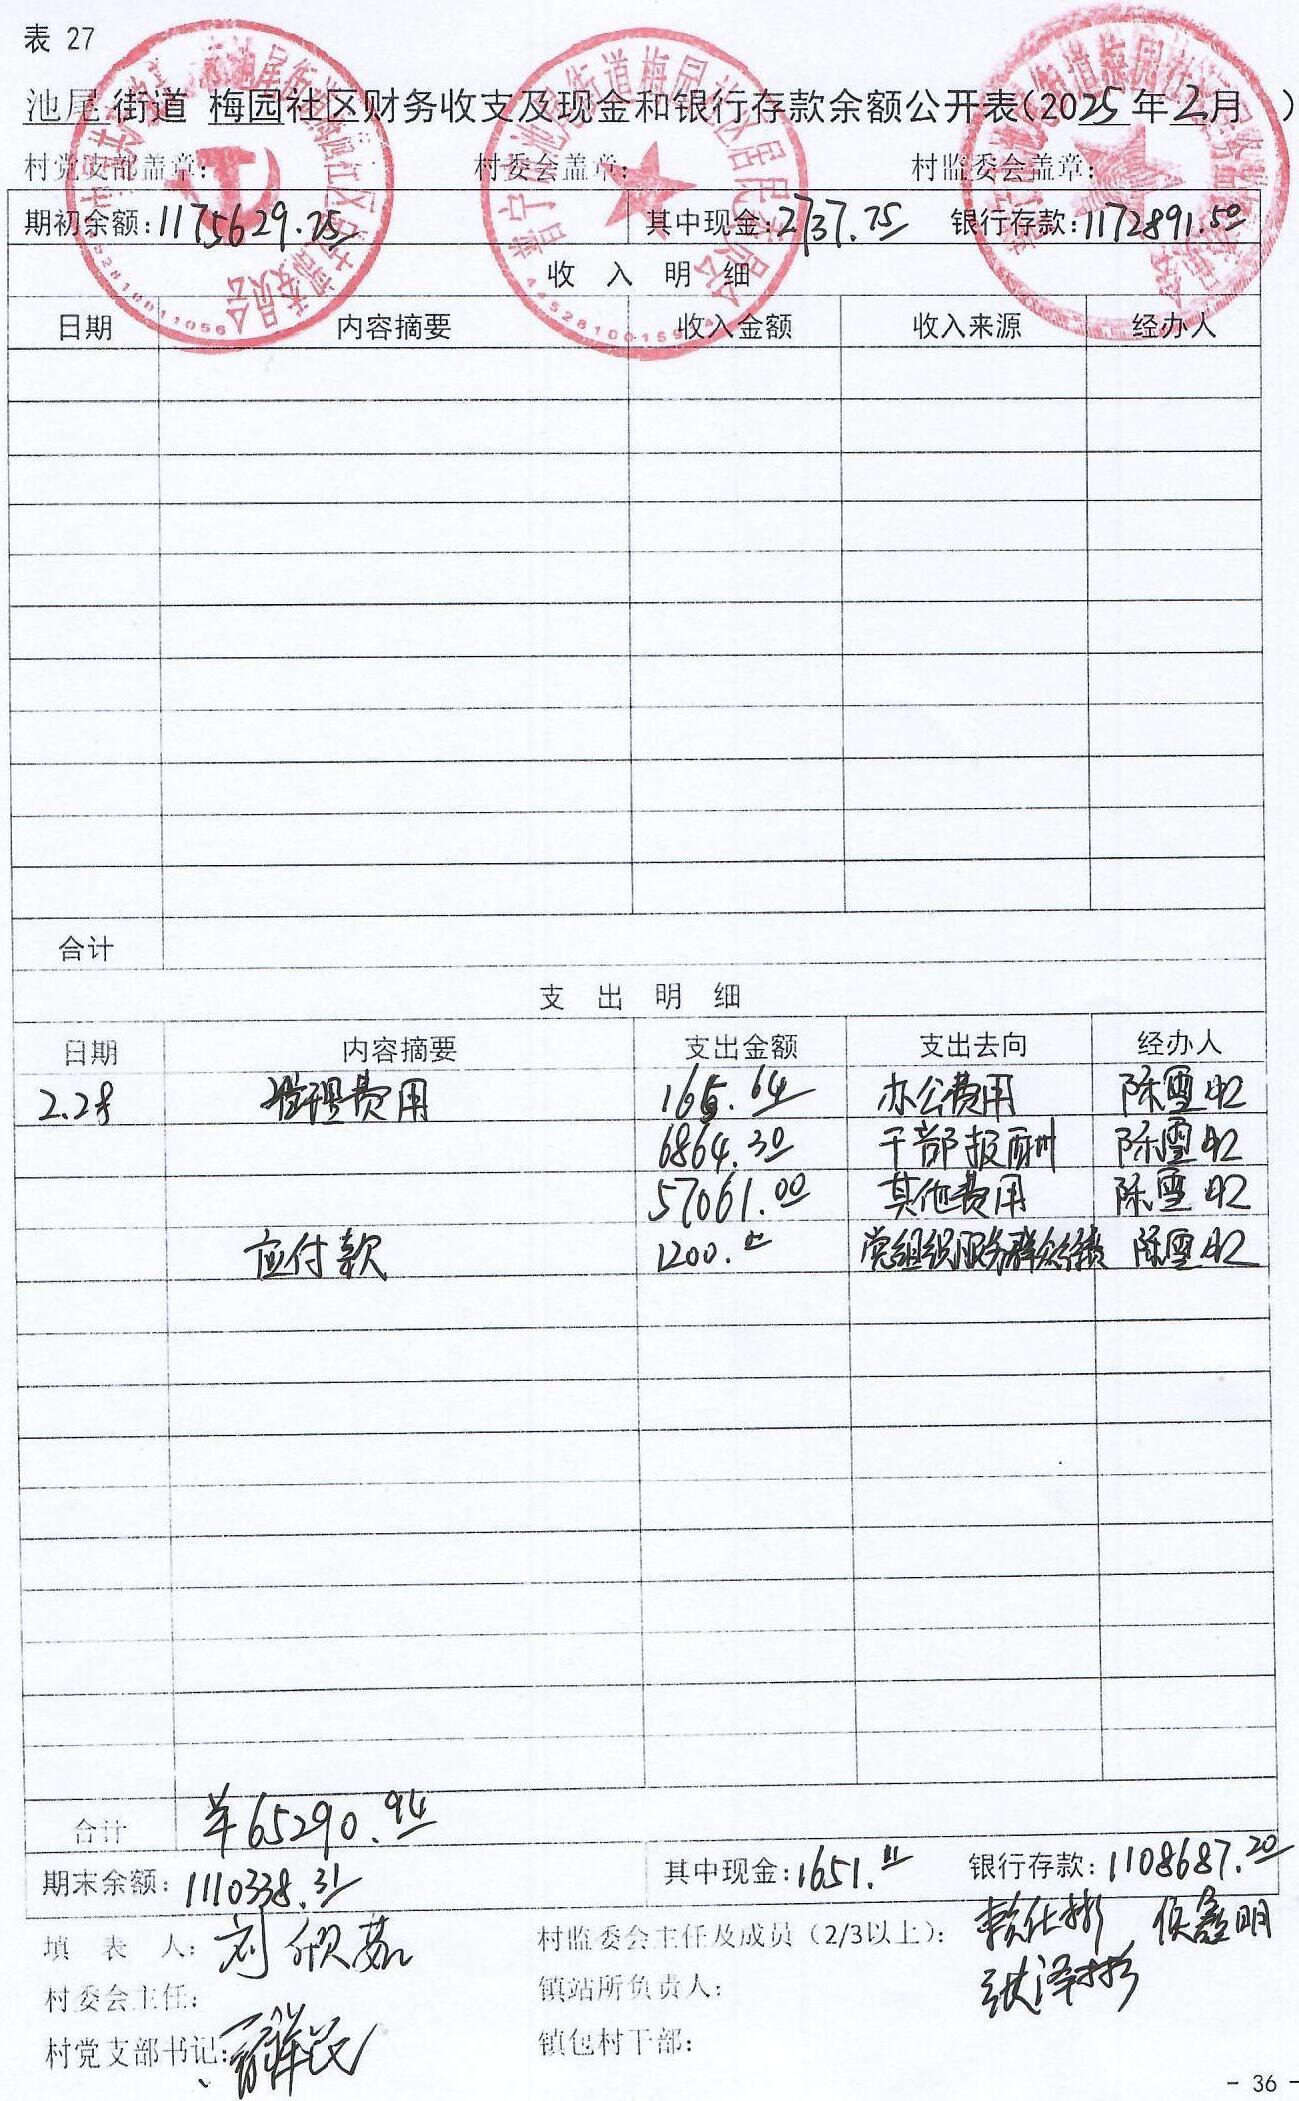 表 27
池尾 街道 梅园社区财务收支及现金和银行存款余额公开表(2025 年 2月 )
村党支部盖章: 村委会盖章: 村监委会盖章:
期初余额:1175629.25 其中现金:2737.75 银行存款:1172891.50
收 入 明 细
日期 内容摘要 收入金额 收入来源 经办人
合计
支 出 明 细
日期 内容摘要 支出金额 支出去向 经办人
2.28 管理费用 165.64 办公费用 陈雪
6864.30 干部报酬 陈雪
57061.00 其他费用 陈雪
应付款 1200.00 党组织服务群众经费 陈雪
合计 ¥65290.94
期末余额:1110338.31 其中现金:1651.11 银行存款:1108687.20
填 表 人: 村监委会主任及成员(2/3以上):
村委会主任: 镇站所负责人:
村党支部书记: 镇包村干部:
- 36 -